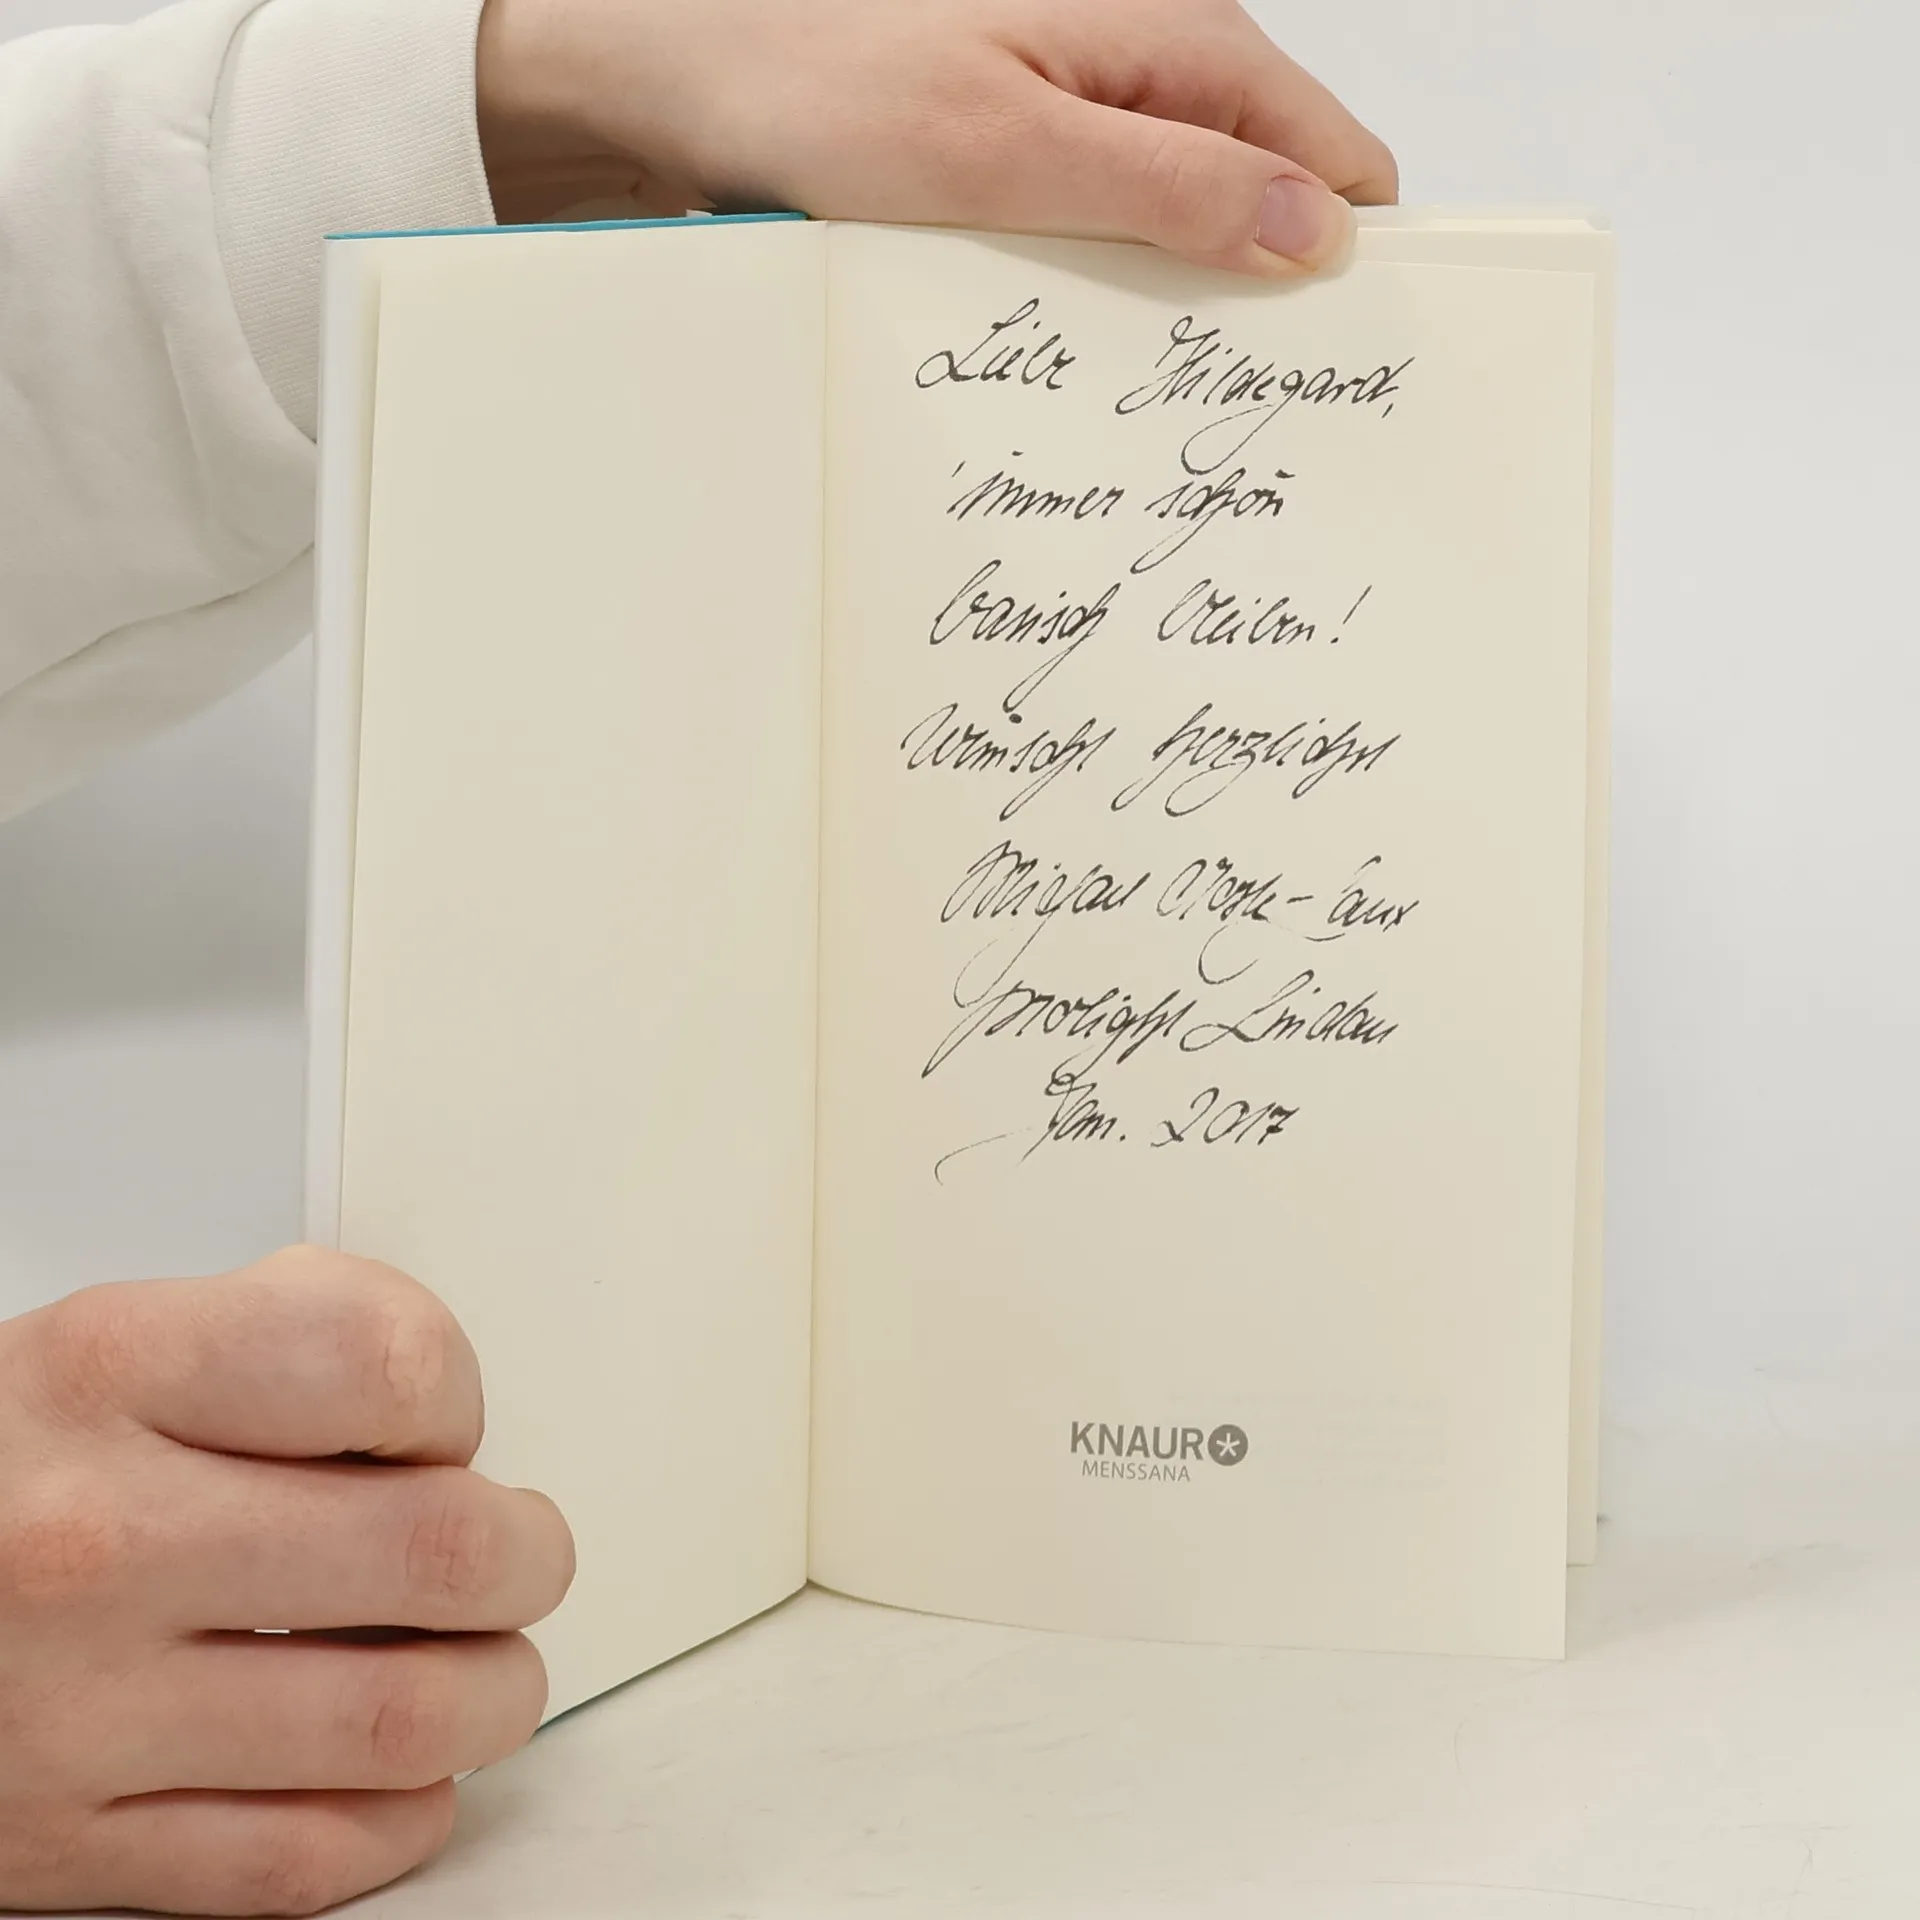 Liebe Hildegard,
immer schön
basisch bleiben!
Wünscht herzlichst
Michael
prolight Lindau
Jan. 2017
KNAUR
MENSSANA